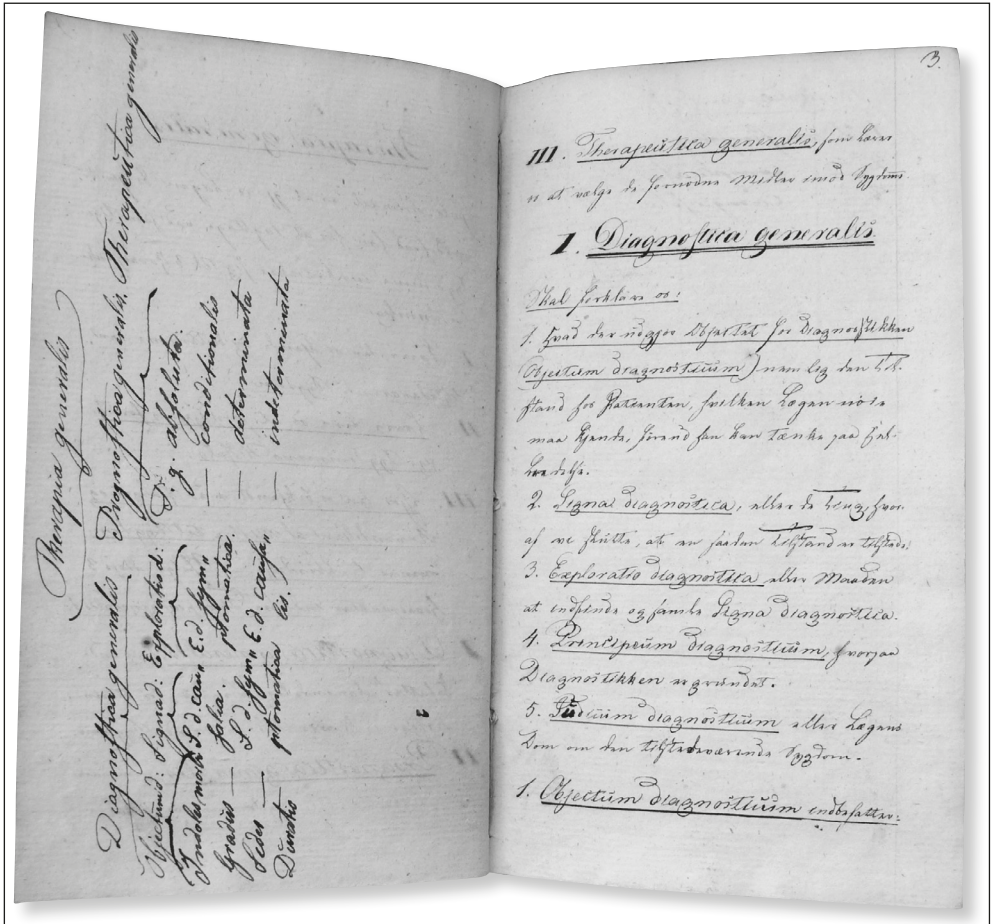 Therapia generalis
Diagnostica generalis Prognostica generalis. Therapeutica generalis
Objectum d: Signa d: Exploratio d: P. g. absoluta.
Indoles morbi S. d. cau„ E. d. sym„ — conditionalis
Gradus — salia. ptomatica. — determinata
Sedes — S. d. sym„ E. d. causa„ — indeterminata
Duratio ptomatica lis.
3.
III. Therapeutica generalis, som lærer
os at vælge de fornødne Midler imod Sygdomme.
I. Diagnostica generalis
Skal forklare os:
1. Hvad der udgjør Objectet for Diagnostikken
(Objectum diagnosticum) nemlig den Til-
stand hos Patienten, hvilken Lægen nøie
maa kjende, førend han kan tænke paa Hel-
bredelse.
2. Signa diagnostica, eller de Tegn, hvor-
af vi slutte, at en saadan Tilstand er tilstede.
3. Exploratio diagnostica eller Maaden
at indfinde og samle Signa diagnostica.
4. Principium diagnosticum, hvorpaa
Diagnostikken er grundet.
5. Judicium diagnosticum eller Lægens
Dom om den tilstedeværende Sygdom.
1. Objectum diagnosticum indbefatter: